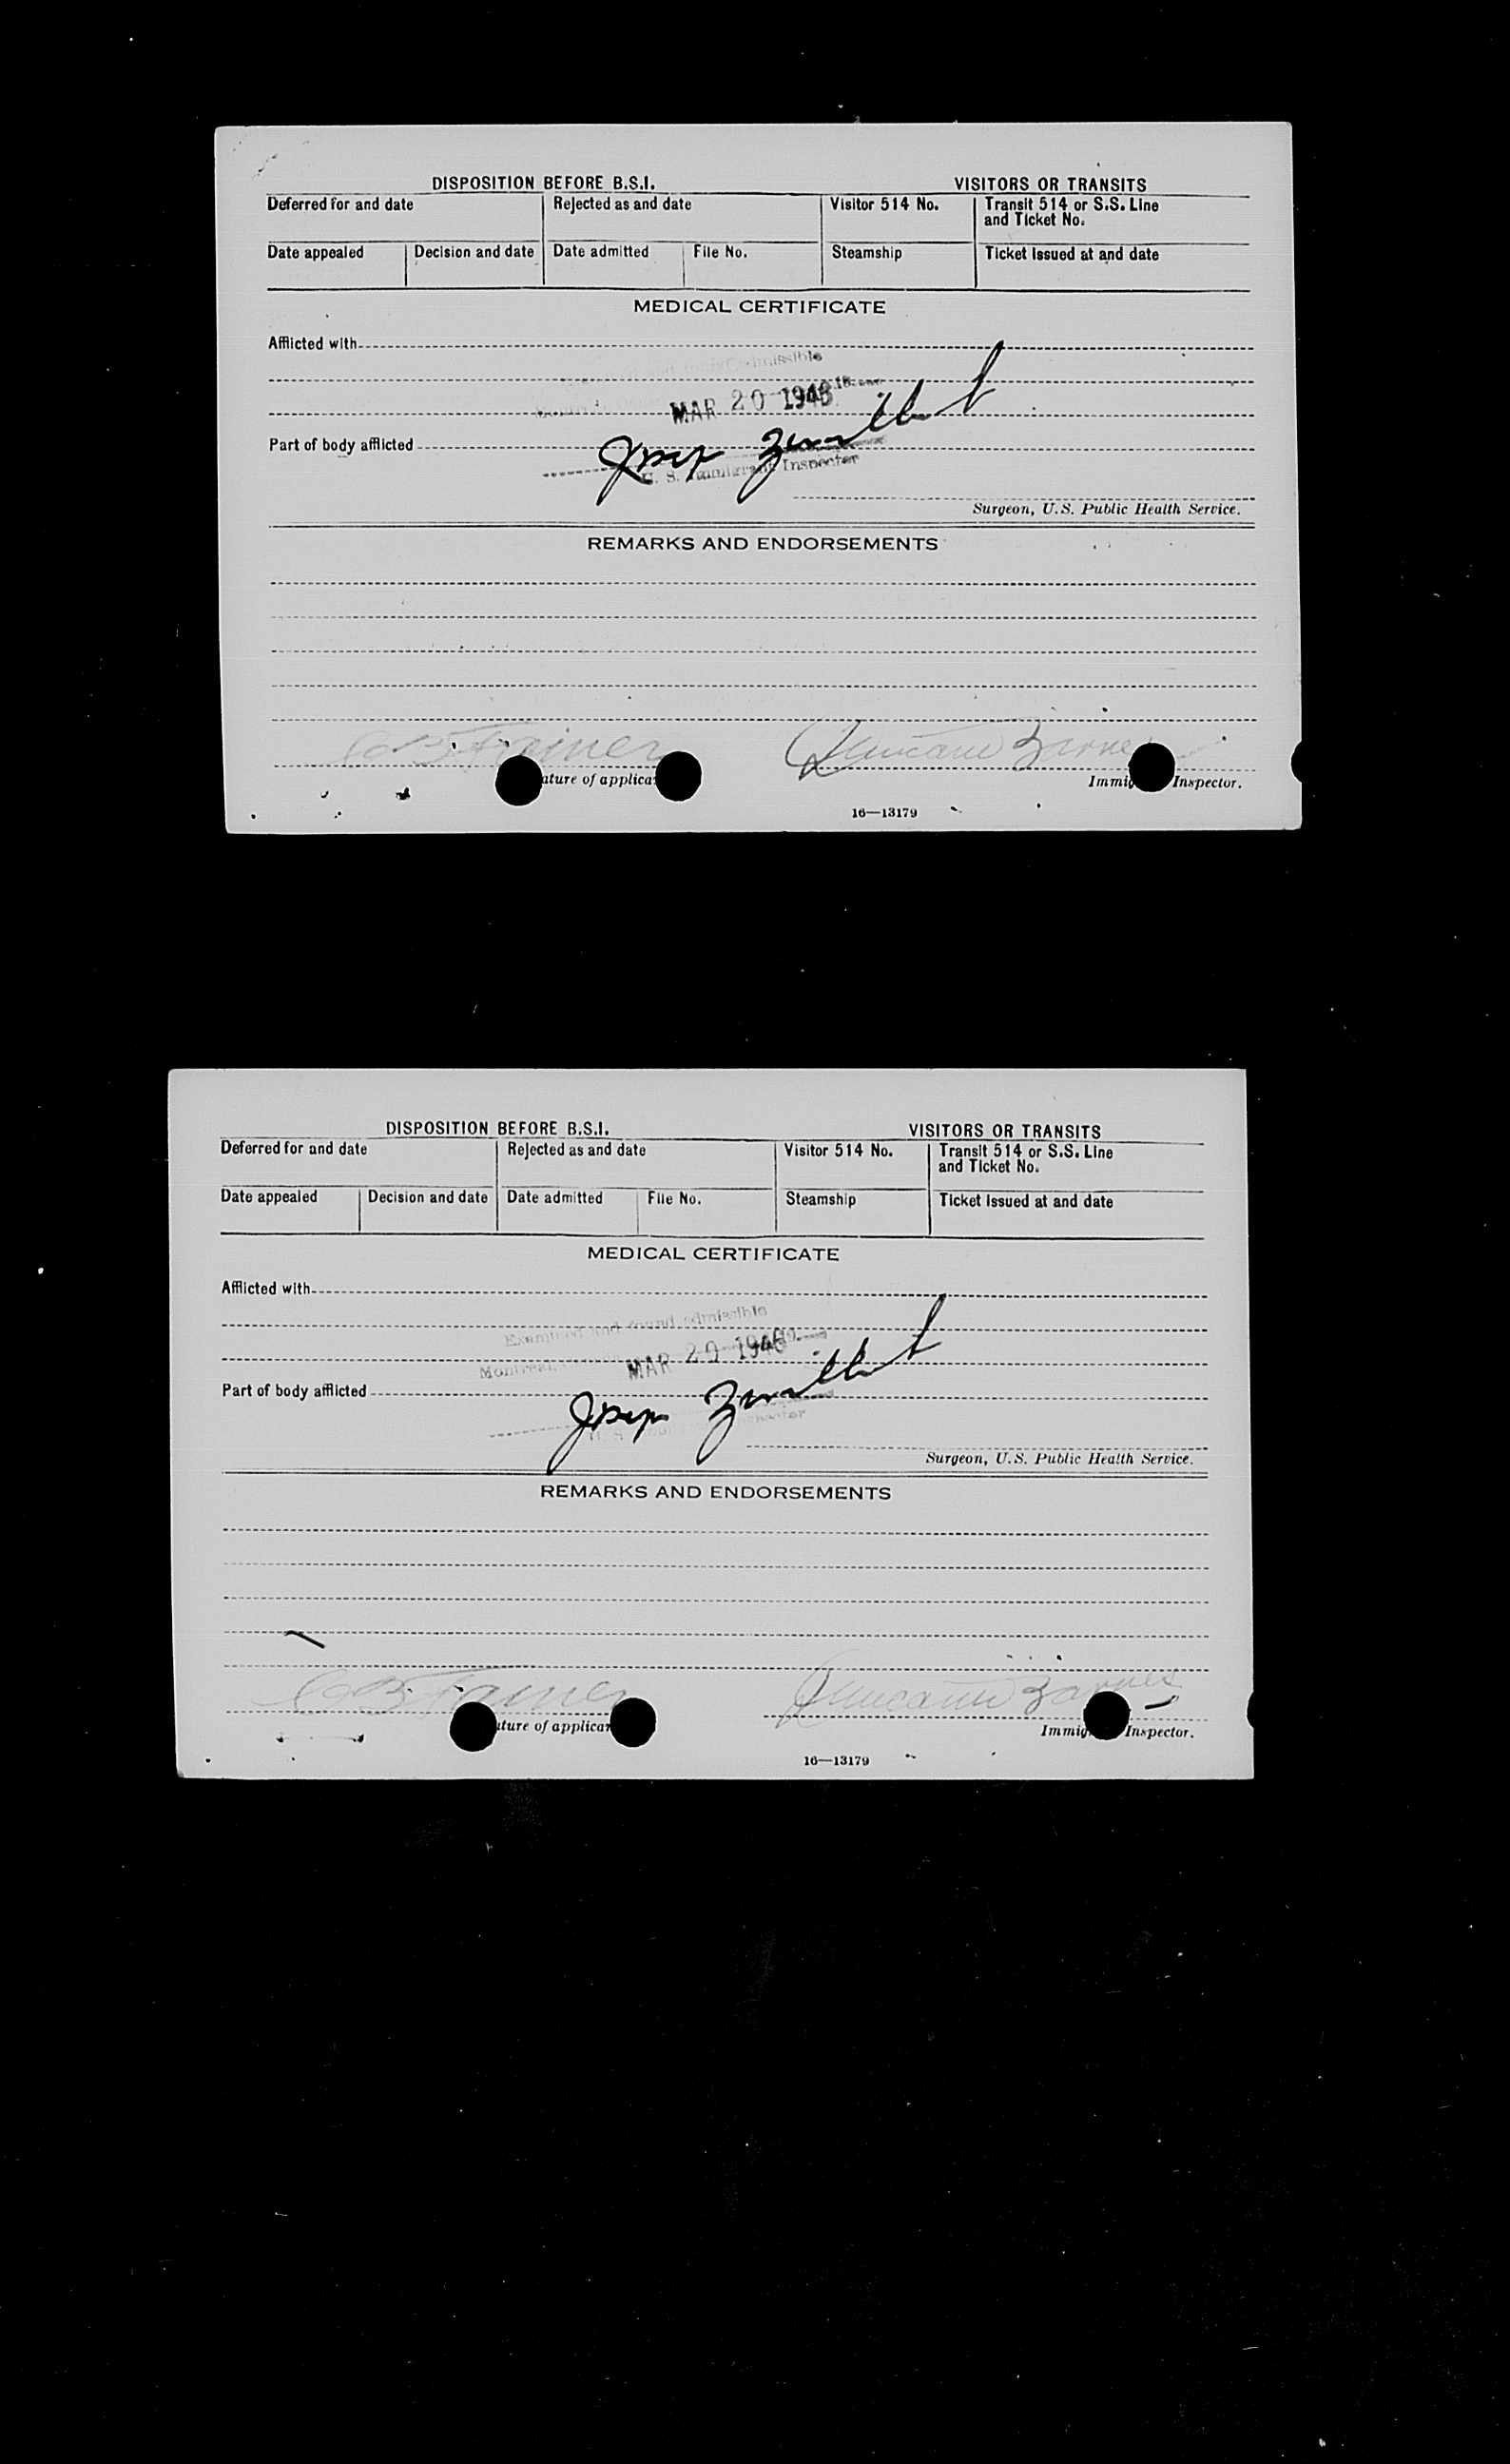 DISPOSITION BEFORE B.S.I. VISITORS OR TRANSITS
Deferred for and date Rejected as and date Visitor 514 No. Transit 514 or S.S. Line
and Ticket No.
Date appealed Decision and date Date admitted File No. Steamship Ticket Issued at and date
MEDICAL CERTIFICATE
Afflicted with
admissible
MAR 20 1946
Part of body afflicted
U. S. Immigrant Inspector
Surgeon, U.S. Public Health Service.
REMARKS AND ENDORSEMENTS
ature of applica
Immig Inspector.
16—13179
DISPOSITION BEFORE B.S.I. VISITORS OR TRANSITS
Deferred for and date Rejected as and date Visitor 514 No. Transit 514 or S.S. Line
and Ticket No.
Date appealed Decision and date Date admitted File No. Steamship Ticket Issued at and date
MEDICAL CERTIFICATE
Afflicted with
Examined and found admissible
Montreal MAR 20 1946
Part of body afflicted
Joseph
U. S. Inspector
Surgeon, U.S. Public Health Service.
REMARKS AND ENDORSEMENTS
ature of applica
Immig Inspector.
16—13179